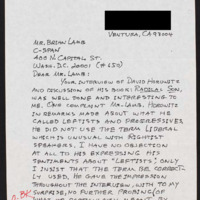 VENTURA, CA 93004
MR. BRIAN LAMB
C-SPAN
400 N. CAPITOL ST.
WASH. D.C. 20001 (#650)
DEAR MR. LAMB:
YOUR INTERVIEW OF DAVID HOROWITZ
AND DISCUSSION OF HIS BOOK, RADICAL SON,
WAS WELL DONE AND INTERESTING TO
ME. ONE COMPLAINT MR. LAMB. HOROWITZ
IN REMARKS MADE ABOUT WHAT HE
CALLED LEFTISTS AND PROGRESSIVES
HE DID NOT USE THE TERM LIBERAL
WHICH IS UNUSUAL WITH RIGHTIST
SPEAKERS. I HAVE NO OBJECTION
AT ALL TO HIS EXPRESSING HIS
SENTIMENTS ABOUT "LEFTISTS"; ONLY
I INSIST THAT THE TERM BE CORRECT-
LY USED. HE GAVE THE IMPRESSION
THROUGHOUT THE INTERVIEW, WITH TO MY
SURPRISE, NO FURTHER PROBING OF